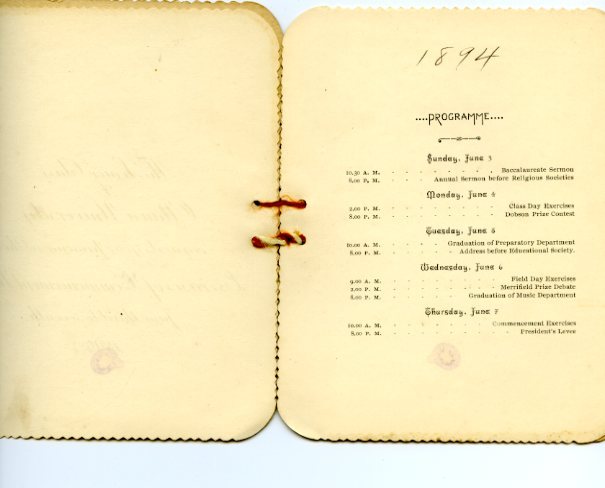 1894
....PROGRAMME....
Sunday, June 3
10.30 A. M. . . . . . . . . Baccalaureate Sermon
8.00 P. M. . . . Annual Sermon before Religious Societies
Monday, June 4
2.00 P. M. . . . . . . . . Class Day Exercises
8.00 P. M. . . . . . . . . Dobson Prize Contest
Tuesday, June 5
10.00 A. M. . . . . Graduation of Preparatory Department
8.00 P. M. . . . . . Address before Educational Society.
Wednesday, June 6
9.00 A. M. . . . . . . . . Field Day Exercises
2.00 P. M. . . . . . . . . Merrifield Prize Debate
8.00 P. M. . . . . . Graduation of Music Department
Thursday, June 7
10.00 A. M. . . . . . . . Commencement Exercises
8.00 P. M. . . . . . . . . . President's Levee